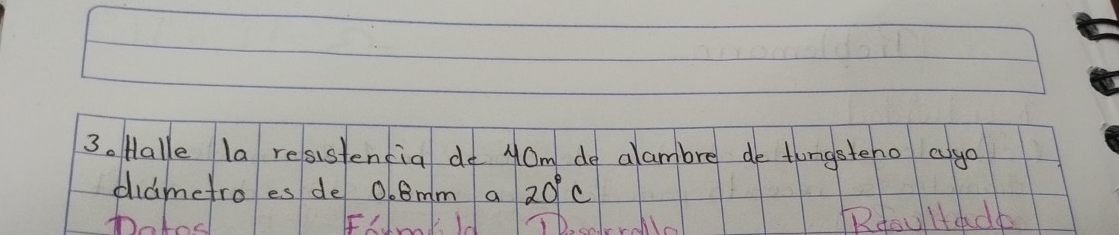 3. Halle la resistencia de 40m de alambre de tungsteno cuyo
diámetro es de 0.8mm a 20°C
Datos Fórmula Desarrollo Resultado